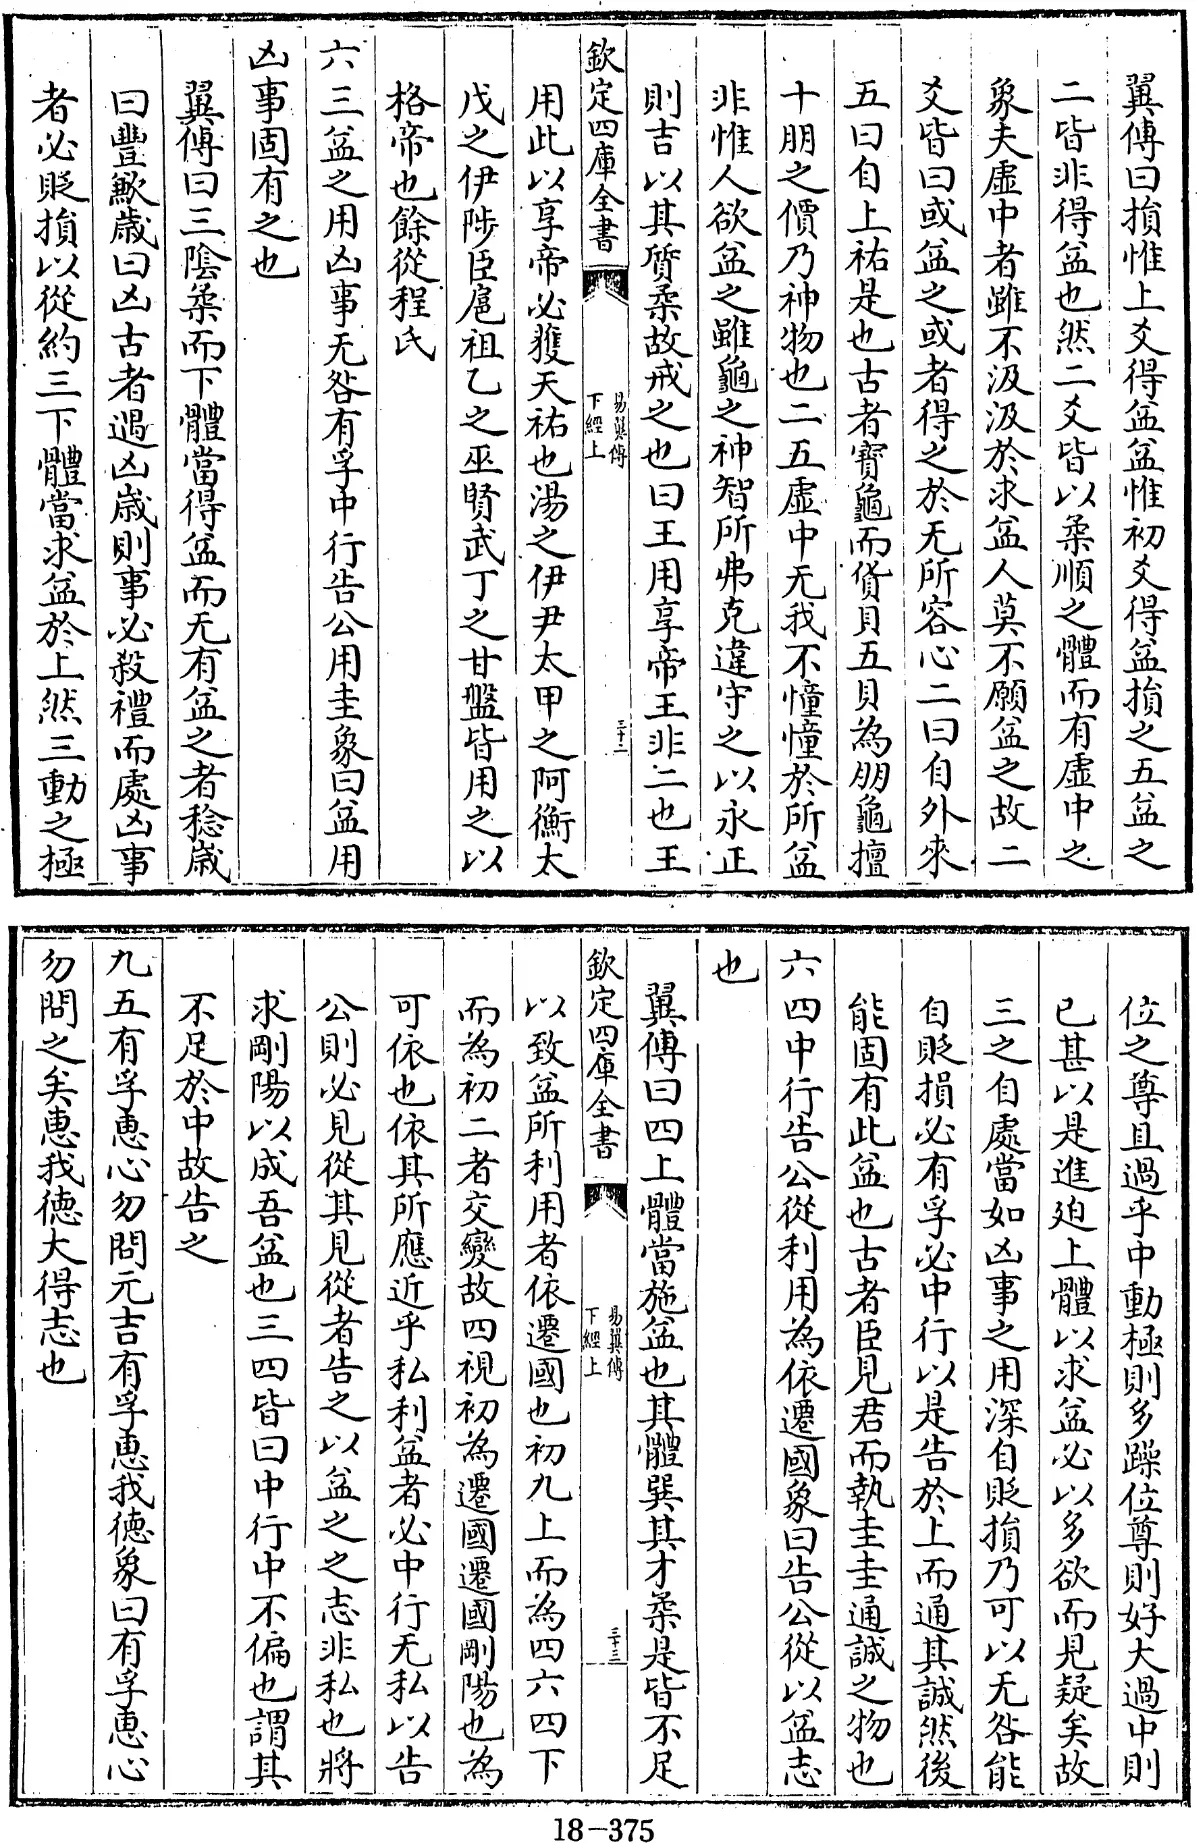 翼傳曰損惟上爻得益益惟初爻得益損之五益之
二皆非得益也然二爻皆以柔順之體而有虛中之
象夫虛中者雖不汲汲於求益人莫不願益之故二
爻皆曰或益之或者得之於无所容心二曰自外來
五曰自上祐是也古者寶龜而貨貝五貝為朋龜擅
十朋之價乃神物也二五虛中无我不憧憧於所益
非惟人欲益之雖龜之神智所弗克違守之以永正
則吉以其質柔故戒之也曰王用享帝王非二也王
欽定四庫全書
易翼傳
下經上
三十二
用此以享帝必獲天祐也湯之伊尹太甲之阿衡太
戊之伊陟臣扈祖乙之巫賢武丁之甘盤皆用之以
格帝也餘從程氏
六三益之用凶事无咎有孚中行告公用圭象曰益用
凶事固有之也
翼傳曰三陰柔而下體當得益而无有益之者稔歲
曰豐歉歲曰凶古者遇凶歲則事必殺禮而處凶事
者必貶損以從約三下體當求益於上然三動之極
位之尊且過乎中動極則多躁位尊則好大過中則
已甚以是進廹上體以求益必以多欲而見疑矣故
三之自處當如凶事之用深自貶損乃可以无咎能
自貶損必有孚必中行以是告於上而通其誠然後
能固有此益也古者臣見君而執圭圭通誠之物也
六四中行告公從利用為依遷國象曰告公從以益志
也
翼傳曰四上體當施益也其體巽其才柔是皆不足
欽定四庫全書
易翼傳
下經上
三十三
以致益所利用者依遷國也初九上而為四六四下
而為初二者交變故四視初為遷國遷國剛陽也為
可依也依其所應近乎私利益者必中行无私以告
公則必見從其見從者告之以益之之志非私也將
求剛陽以成吾益也三四皆曰中行中不偏也謂其
不足於中故告之
九五有孚惠心勿問元吉有孚惠我德象曰有孚惠心
勿問之矣惠我德大得志也
18-375